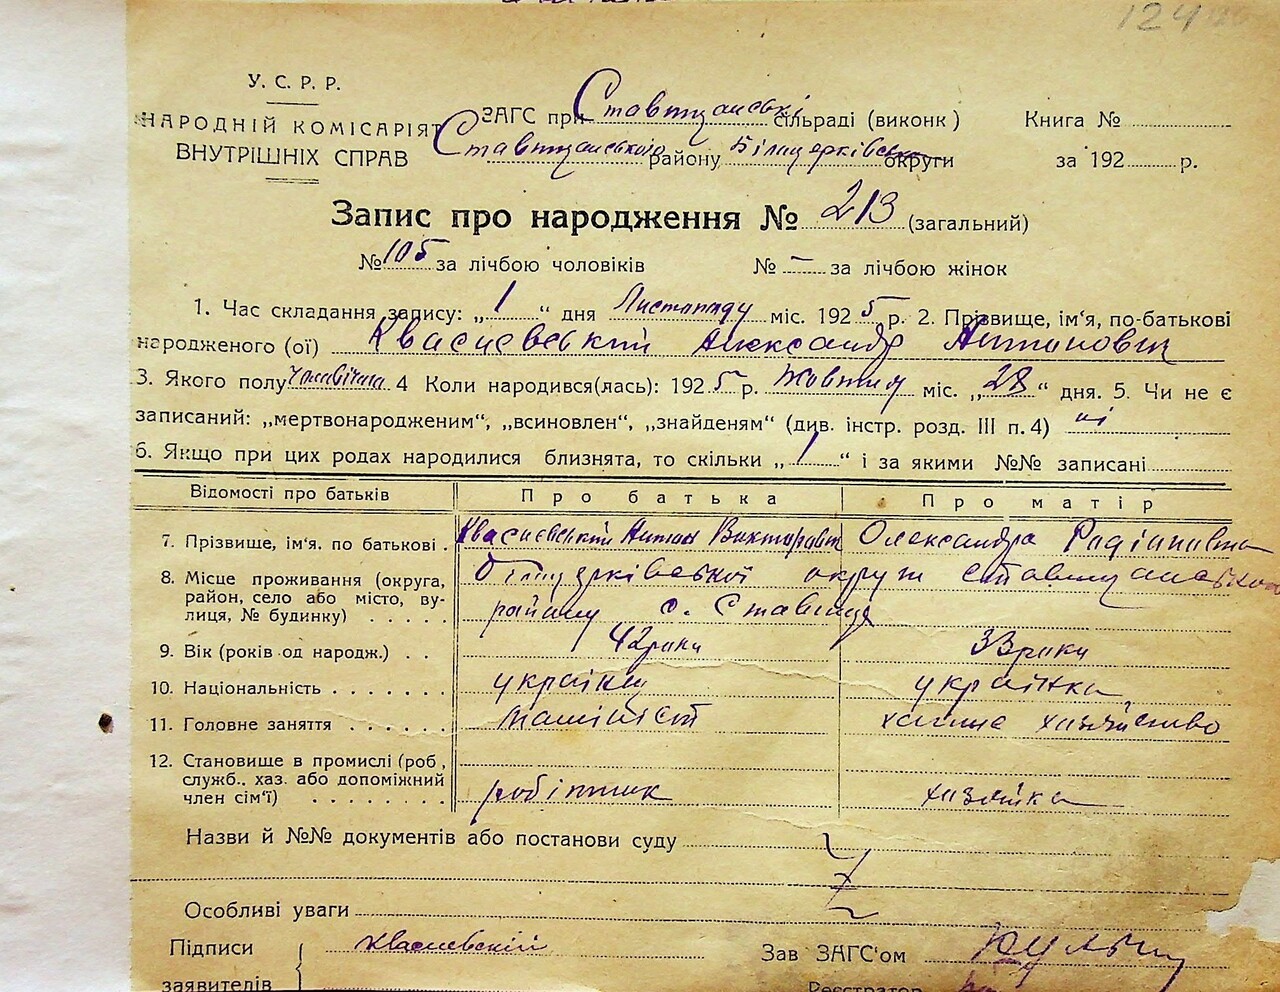 124
У. С. Р. Р.
НАРОДНІЙ КОМІСАРІЯТ
ВНУТРІШНІХ СПРАВ
ЗАГС при Ставищанські сільраді (виконк)
Ставищанського району Білоцерківськ округи
Книга №
за 192 р.
Запис про народження № 213 (загальний)
№ 105 за лічбою чоловіків № – за лічбою жінок
1. Час складання запису: „1“ дня Листопаду міс. 1925 р. 2. Прізвище, ім'я, по-батькові
народженого (ої) Квасневський Александр Антонович
3. Якого полу чоловіча 4 Коли народився(лась): 1925 р. Жовтня міс. „28“ дня. 5. Чи не є
записаний: „мертвонародженим“, „всиновлен“, „знайденям“ (див. інстр. розд. III п. 4) ні
6. Якщо при цих родах народилися близнята, то скільки „1“ і за якими №№ записані
Відомості про батьків Про батька Про матір
7. Прізвище, ім'я. по батькові. Квасневський Антон Викторовіч Олександра Радіановна
8. Місце проживання (округа, Білоцерківської округи Ставищанського
район, село або місто, ву- району с. Ставище
лиця, № будинку)
9. Вік (років од народж.) 42 роки 33 роки
10. Національність українец українка
11. Головне заняття машініст хатнє хазяйство
12. Становище в промислі (роб,
служб., хаз. або допоміжний
член сім'ї) робітник хазяйка
Назви й №№ документів або постанови суду
Особливі уваги
Підписи Квасневский Зав ЗАГС'ом
заявителів Реєстратор